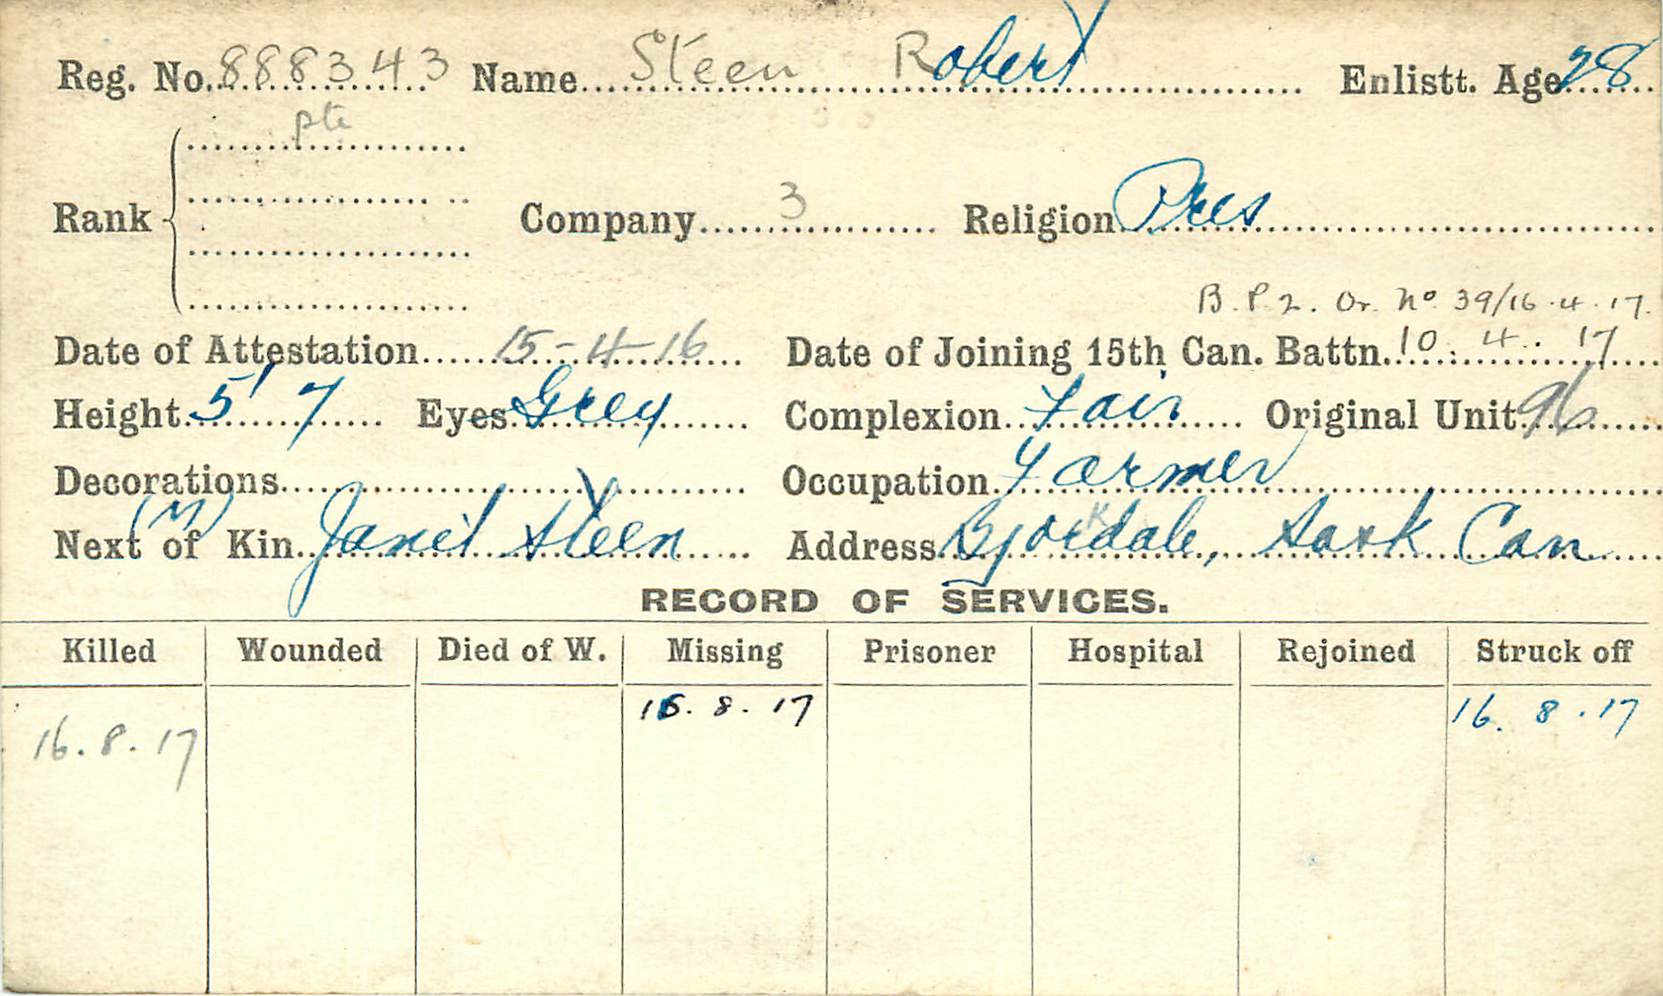 Reg. No. 888343 Name Steen Robert Enlistt. Age 28
Rank Pte
Company 3 Religion Pres
B.P.2. Or. No 39/16.4.17.
Date of Attestation 15-4-16 Date of Joining 15th Can. Battn. 10.4.17
Height 5' 7 Eyes Grey Complexion Fair Original Unit 96
Decorations Occupation Farmer
Next of Kin (M) Janet Steen Address Bjorkdale, Sask Can
RECORD OF SERVICES.
Killed Wounded Died of W. Missing Prisoner Hospital Rejoined Struck off
16.8.17 16.8.17
16.8.17